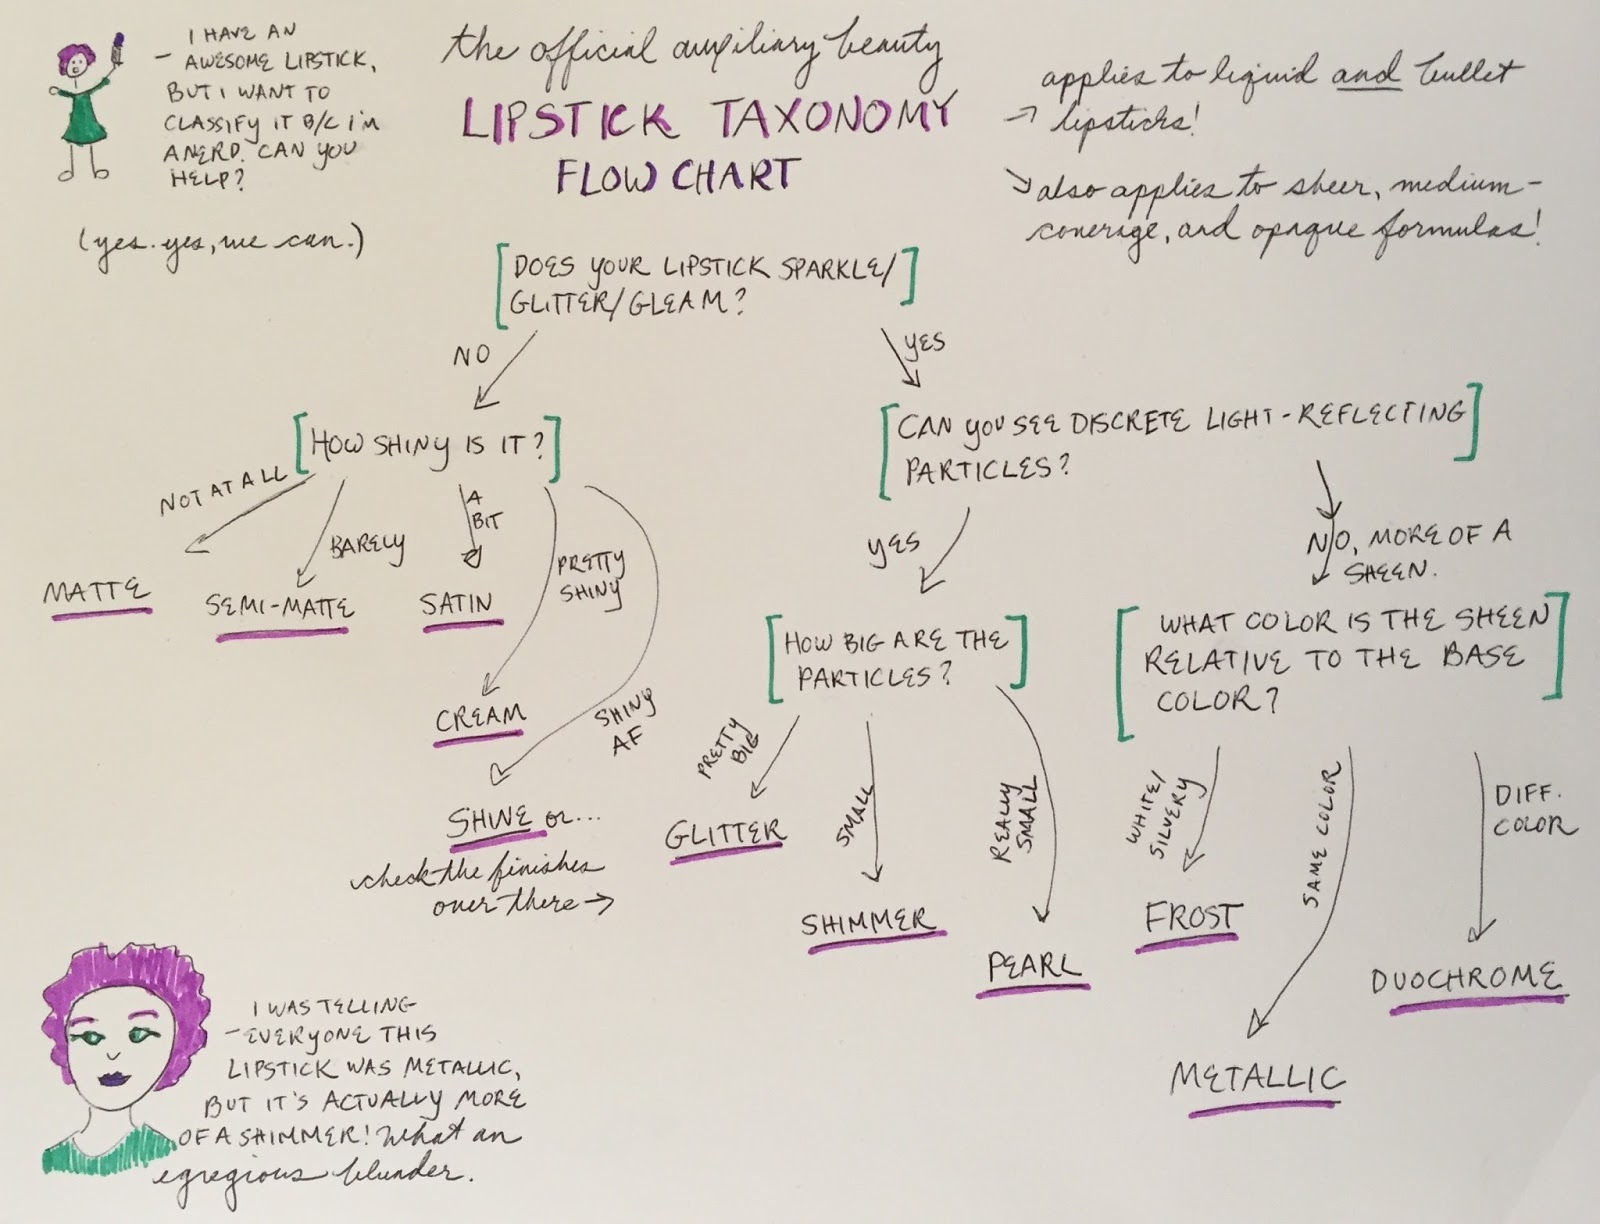 I HAVE AN
AWESOME LIPSTICK,
BUT I WANT TO
CLASSIFY IT B/C I'M
A NERD. CAN YOU
HELP?
(yes. yes, we can.)
the official auxiliary beauty
LIPSTICK TAXONOMY
FLOW CHART
applies to liquid and bullet
lipsticks!
also applies to sheer, medium-
coverage, and opaque formulas!
DOES YOUR LIPSTICK SPARKLE/
GLITTER/GLEAM?
NO
YES
HOW SHINY IS IT?
NOT AT ALL
MATTE
BARELY
SEMI-MATTE
A
BIT
SATIN
PRETTY
SHINY
CREAM
SHINY
AF
SHINE or...
check the finishes
over there →
CAN YOU SEE DISCRETE LIGHT-REFLECTING
PARTICLES?
YES
NO, MORE OF A
SHEEN.
HOW BIG ARE THE
PARTICLES?
PRETTY
BIG
GLITTER
SMALL
SHIMMER
REALLY
SMALL
PEARL
WHAT COLOR IS THE SHEEN
RELATIVE TO THE BASE
COLOR?
WHITE/
SILVERY
FROST
SAME COLOR
METALLIC
DIFF.
COLOR
DUOCHROME
I WAS TELLING
EVERYONE THIS
LIPSTICK WAS METALLIC,
BUT IT'S ACTUALLY MORE
OF A SHIMMER! What an
egregious blunder.